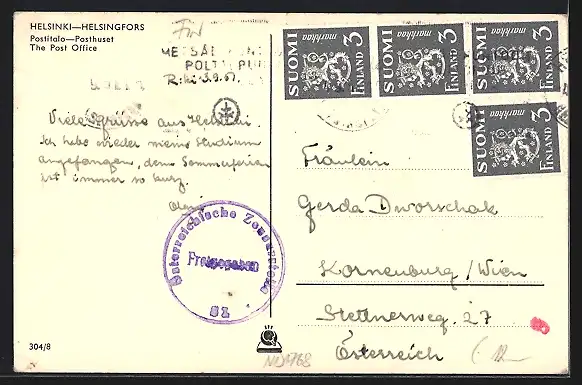 HELSINKI—HELSINGFORS
Postitalo—Posthuset
The Post Office
METSÄ
POLTTOPUU
R:ki 3.9.47.
SUOMI markkaa 3 FINLAND
SUOMI markkaa 3 FINLAND
SUOMI markkaa 3 FINLAND
SUOMI markkaa 3 FINLAND
Viele Grüsse aus Helsinki.
Ich habe wieder meine Studium
angefangen, denn Sommerferien
ist immer so kurz.
Österreichische Zensurstelle
Freigegeben
Fräulein
Gerda Dworschak
Kornenburg/Wien
Stettnerweg. 27
Österreich
304/8